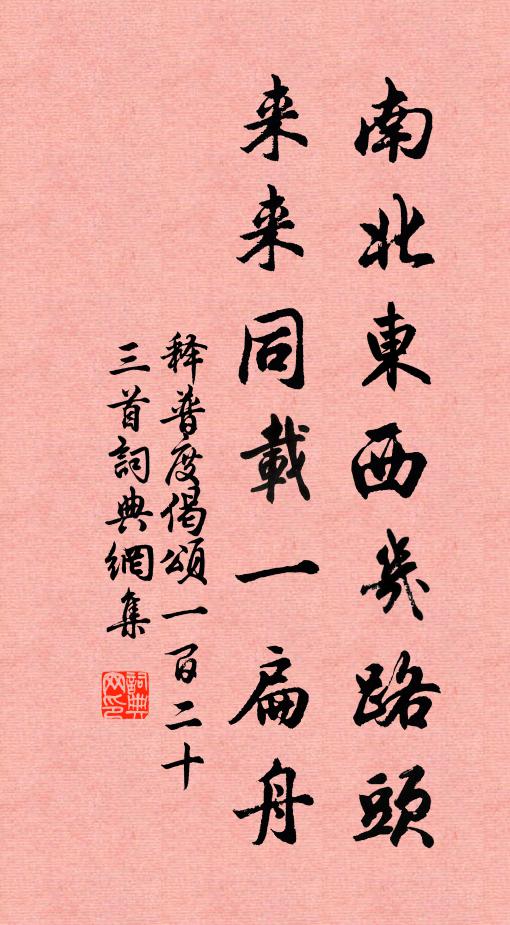 南北東西幾路頭
来来同載一扁舟
释普度偈頌一百二十
三首詞典網集
詞典網印